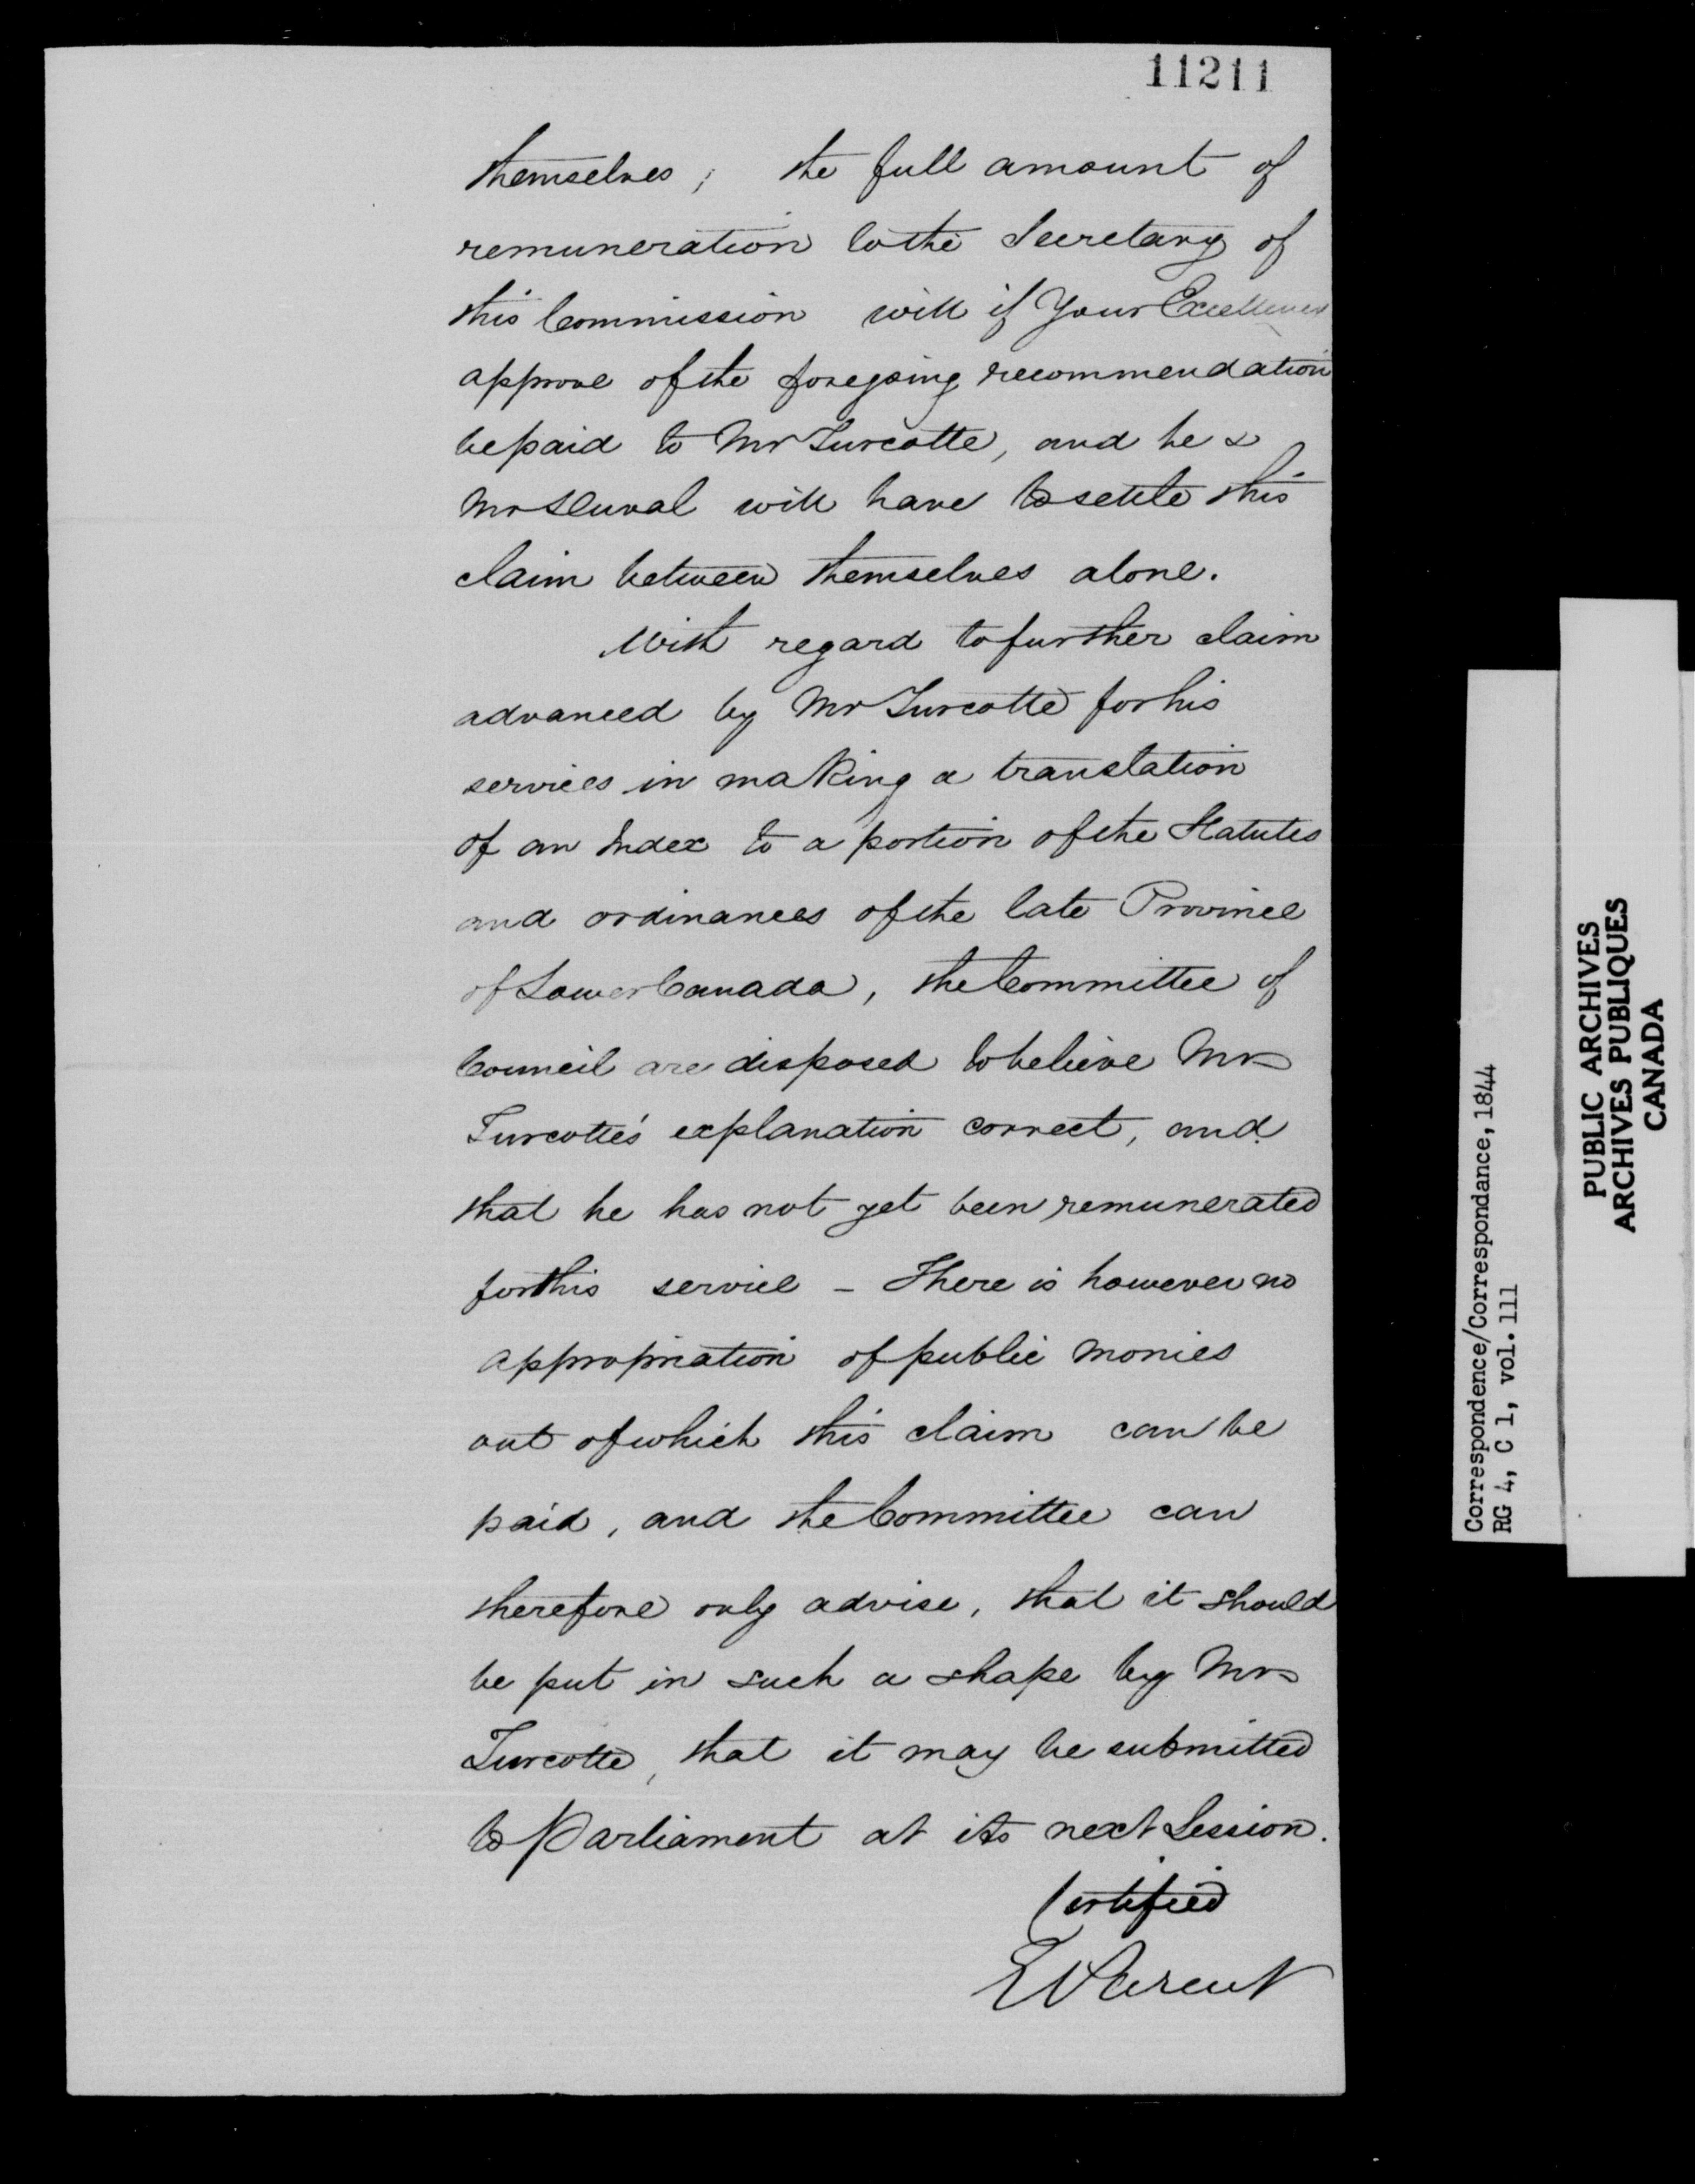 11211
themselves; the full amount of
remuneration to the Secretary of
this Commission will if Your Excellency
approve of the foregoing recommendation
be paid to Mr Turcotte, and he &
Mr Duval will have to settle this
claim between themselves alone.
With regard to further claim
advanced by Mr Turcotte for his
services in making a translation
of an Index to a portion of the Statutes
and ordinances of the late Province
of Lower Canada, the Committee of
Council are disposed to believe Mr
Turcotte's explanation correct, and
that he has not yet been remunerated
for this service - There is however no
appropriation of public monies
out of which this claim can be
paid, and the Committee can
therefore only advise, that it should
be put in such a shape by Mr
Turcotte, that it may be submitted
to Parliament at its next Session.
Certified
E Parent
Correspondence/Correspondance, 1844
RG 4, C 1, vol. 111
PUBLIC ARCHIVES
ARCHIVES PUBLIQUES
CANADA